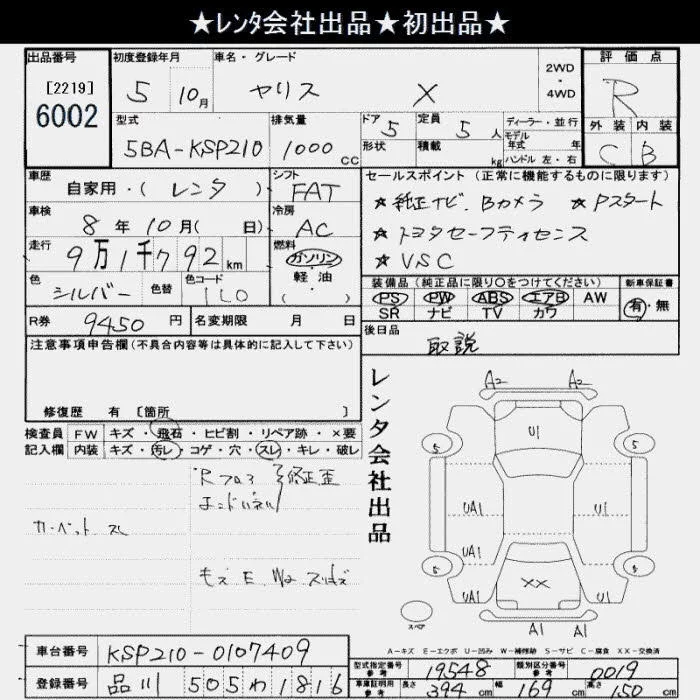 ★レンタ会社出品★初出品★
出品番号 初度登録年月 車名・グレード 評価点
[2219]
6002
5 10月 ヤリス X 2WD・4WD R
型式 排気量 ドア 定員 ディーラー・並行 外装 内装
5BA-KSP210 1000CC 5 5人 モデル年式 年 C B
形状 積載 kg ハンドル 左・右
車歴 自家用・(レンタ) シフト FAT
セールスポイント(正常に機能するものに限ります)
車検 8年10月(日) 冷房 AC
★純正ナビ、Bカメラ ★Pスタート
走行 9万1千792km 燃料 ガソリン・軽・油()
★トヨタセーフティセンス
★VSC
色 シルバー 色替 色コード 1L0
装備品(純正品に限り○をつけてください) 新車保証書
PS PW ABS エアB AW 有・無
SR ナビ TV カワ
R券 9450円 名変期限 月 日
後日品 取説
注意事項申告欄(不具合内容等は具体的に記入して下さい)
修復歴 有 [箇所 ]
検査員 FW キズ・飛石・ヒビ割・リペア跡・×要
記入欄 内装 キズ・汚レ・コゲ・穴・スレ・キレ・破レ
修正歪
カーペット スレ
レンタ会社出品
A2 A2
U1
5 5
UA1 U1
UA1
XX
5 5
UA1 U1
A1 A1
スペア
A-キズ E-エクボ U-凹み W-補修跡 S-サビ C-腐食 XX-交換済
車台番号 KSP210-0107409
型式指定番号 参考 19548 類別区分番号 参考 0019
登録番号 品川 505 わ 1816
車庫証明用 参考 長さ 394cm 幅 169cm 高さ 150cm